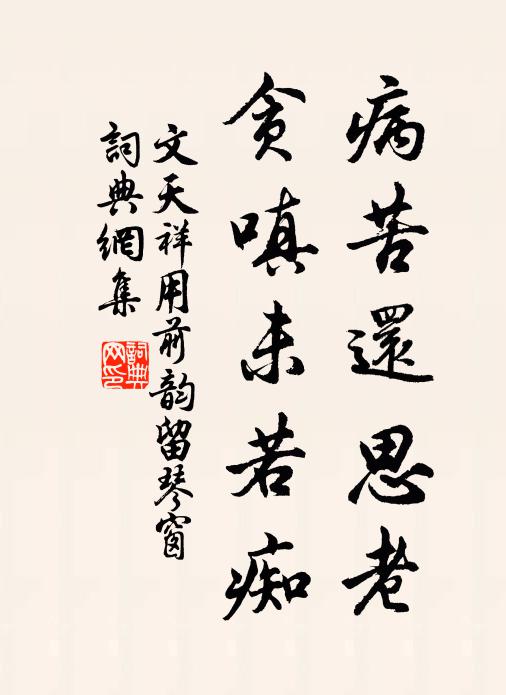 病苦還思老
貪嗔未若痴
文天祥用前韵留琴窗
詞典網集
詞典网印